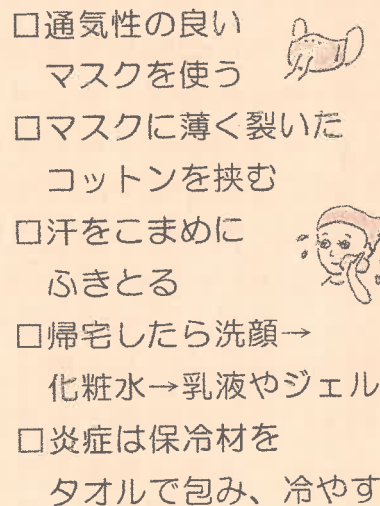 □通気性の良い
マスクを使う
□マスクに薄く裂いた
コットンを挟む
□汗をこまめに
ふきとる
□帰宅したら洗顔→
化粧水→乳液やジェル
□炎症は保冷材を
タオルで包み、冷やす